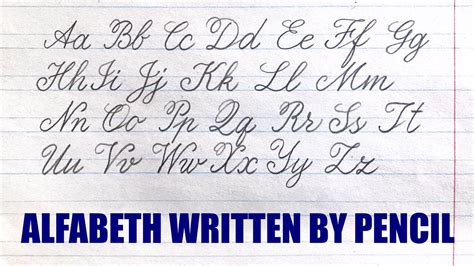 Aa Bb Cc Dd Ee Ff Gg
Hh Ii Jj Kk Ll Mm
Nn Oo Pp Qq Rr Ss Tt
Uu Vv Ww Xx Yy Zz
ALFABETH WRITTEN BY PENCIL